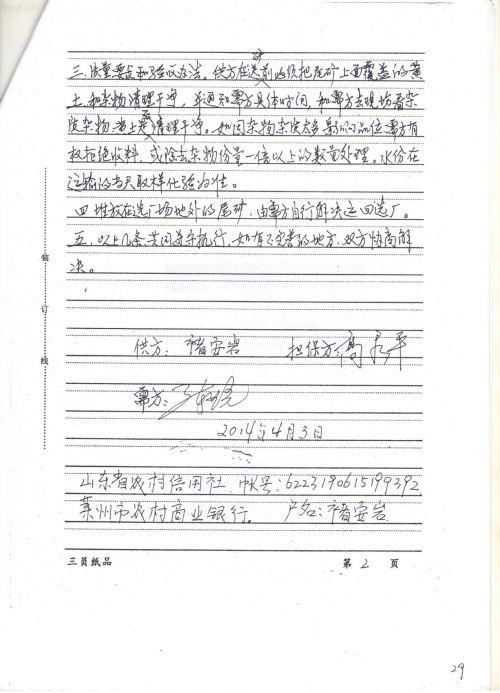 三.质量要求和验收办法。供方在送矿前必须把尾矿上面覆盖的黄
土和杂物清理干净，并通知需方具体时间，如需方去现场看杂
质杂物黄土要清理干净。如因杂物杂质太多影响品位需方有
权拒绝收料，或除去杂物份量一倍以上的数量处理。水份在
运输的当天取样化验为准。
四.堆放在选厂场地外的尾矿，由需方自行解决运回选厂。
五.以上几条共同遵守执行，如有不完善的地方，双方协商解
决。
装 订 线
供方：褚安岩 担保方：高永平
需方：
2014年4月3日
山东省农村信用社 帐号：6223190615199392
莱州市农村商业银行。 户名：褚安岩
三員纸品 第 2 页
29